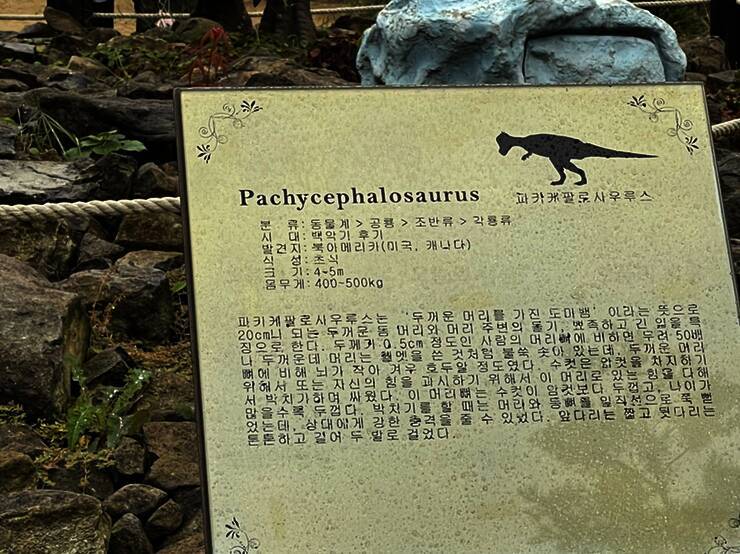 Pachycephalosaurus 파키케팔로사우루스
분 류: 동물계 > 공룡 > 조반류 > 각룡류
시 대: 백악기 후기
발견지: 북아메리카(미국, 캐나다)
식 성: 초식
크 기: 4~5m
몸무게: 400~500kg
파키케팔로사우루스는 '두꺼운 머리를 가진 도마뱀' 이라는 뜻으로
20cm나 되는 두꺼운 돔 머리와 머리 주변의 돌기, 뾰족하고 긴 입을 특
징으로 한다. 두께가 0.5cm 정도인 사람의 머리뼈에 비하면 무려 50배
나 두꺼운데 머리는 헬멧을 쓴 것처럼 불쑥 솟아 있는데, 두꺼운 머리
뼈에 비해 뇌가 작아 겨우 호두알 정도였다. 수컷은 암컷을 차지하기
위해서 또는 자신의 힘을 과시하기 위해서 이 머리로 있는 힘을 다해
서 박치기하며 싸웠다. 이 머리뼈는 수컷이 암컷보다 두껍고, 나이가
많을수록 두껍다. 박치기를 할 때는 머리와 등뼈를 일직선으로 쭉 뻗
었는데, 상대에게 강한 충격을 줄 수 있었다. 앞다리는 짧고 뒷다리는
튼튼하고 길어 두 발로 걸었다.